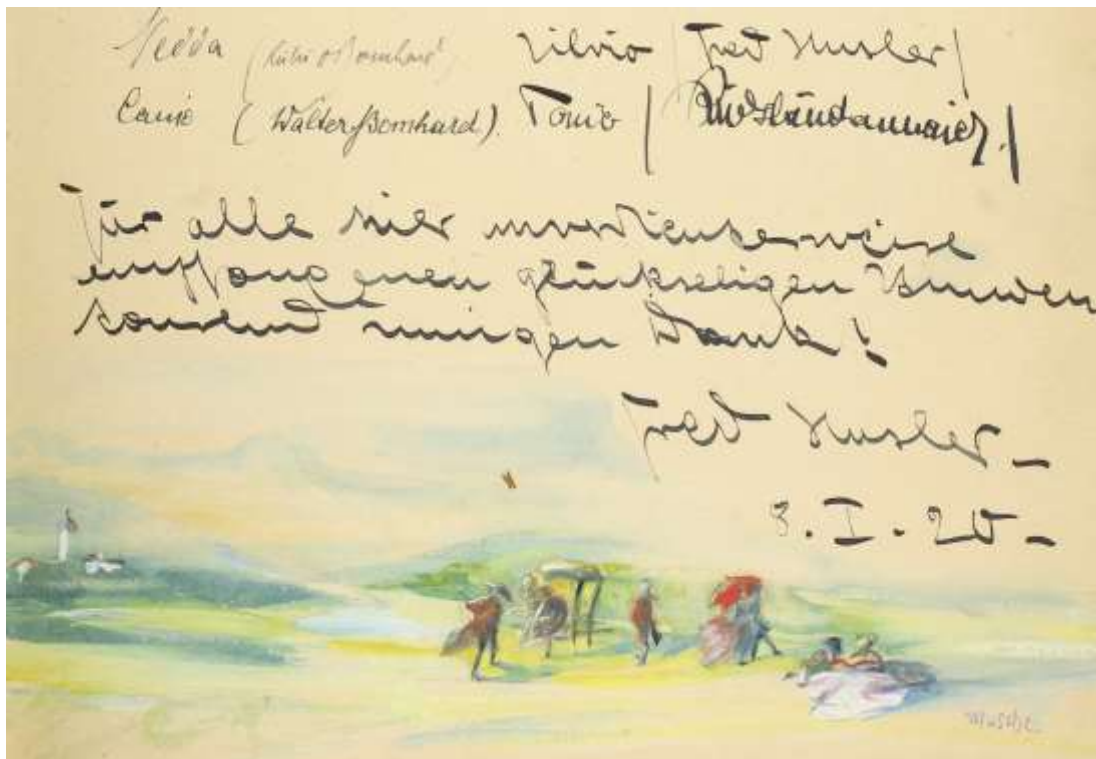 Nedda ( Bomhard) Silvio / Fred Husler /
Canio (Walter Bomhard). Tonio / /
Für alle hier unverdienterweise
empfangenen glückseligen Stunden
tausend innigen Dank!
Fred Husler –
3. I. 20 –